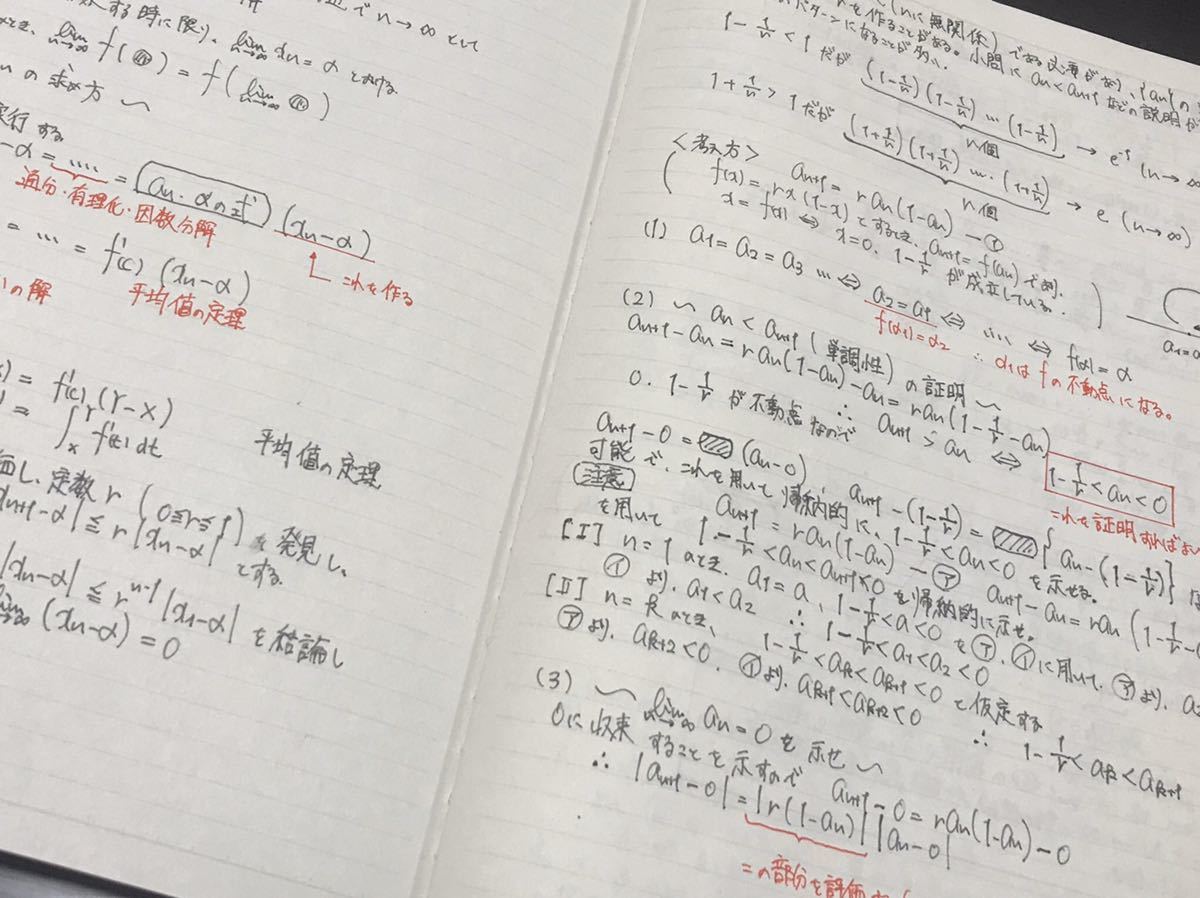 で n→∞ として
する時に限り、lim n→∞ xn = α とおける
lim n→∞ f(㋐) = f(lim n→∞ ㋐)
の求め方 〜
実行する
-α = ‥‥ = an・αの式 (xn-α)
通分・有理化・因数分解
これを作る
= … = f'(c) (xn-α)
の解 平均値の定理
= f'(c) (r-x)
= ∫x r f'(t) dt 平均値の定理
価し、定数 r (0≦r≦1) を発見し、
xn+1-α| ≦ r|xn-α| とする
|xn-α| ≦ r^n-1 |x1-α| を結論し
lim n→∞ (xn-α) = 0
(nに無関係) である必要があり、{an}の
を作ることがある。小問に an<an+1 などの説明が
パターンになることが多い。
1-1/n < 1 だが (1-1/n)(1-1/n) … (1-1/n) → e^-1 (n→∞)
n個
1+1/n > 1 だが (1+1/n)(1+1/n) …. (1+1/n) → e (n→∞)
n個
<考え方>
an+1 = r an(1-an) —㋐
f(x) = rx(1-x) とするとき、an+1 = f(an) であり、
x = f(x) ⇔ x=0, 1-1/r が成立している。
(1) a1 = a2 = a3 … ⇔ a2 = a1 ⇔ ‥‥ ⇔ f(α) = α
f(α1)=α2 ∴ α1は fの不動点になる。
(2) 〜 an < an+1 (単調性) の証明 〜
an+1-an = r an(1-an)-an = r an(1-1/r-an)
0, 1-1/r が不動点なので ∴ an+1 > an ⇔ 1-1/r < an < 0
これを証明すればよい
an+1-0 = (an-0), an+1-(1-1/r) = {an-(1-1/r)}
可能で、これを用いて帰納的に、1-1/r < an < 0 を示せる。
注意 an+1 = r an(1-an) —㋐ an+1-an = r an(1-1/r-
を用いて 1-1/r < an < an+1 < 0 を帰納的に示せ。
[Ⅰ] n=1 のとき、a1 = a, 1-1/r < a < 0 を ㋐, ㋑ に用いて、㋐より、a2
㋑より、a1 < a2 ∴ 1-1/r < a1 < a2 < 0
[Ⅱ] n=k のとき、1-1/r < ak < ak+1 < 0 と仮定する
㋐より、ak+2 < 0, ㋑より、ak+1 < ak+2 < 0 ∴ 1-1/r < ak < ak+1
(3) 〜 lim n→∞ an = 0 を示せ 〜
0に収束することを示すので an+1-0 = r an(1-an)-0
∴ |an+1-0| = |r(1-an)| |an-0|
この部分を評価